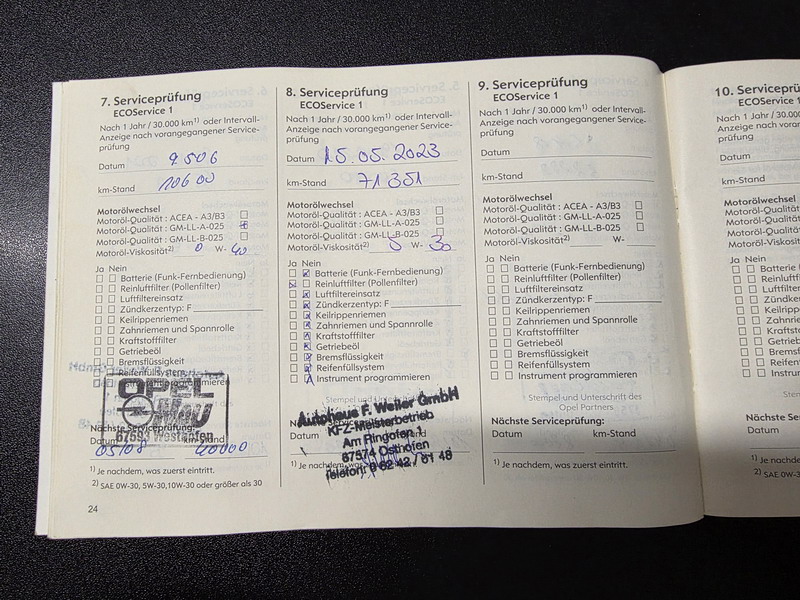 7. Serviceprüfung
ECOService 1
Nach 1 Jahr / 30.000 km¹⁾ oder Intervall-
Anzeige nach vorangegangener Service-
prüfung
Datum 9.506
km-Stand 10600
Motorölwechsel
Motoröl-Qualität : ACEA - A3/B3
Motoröl-Qualität : GM-LL-A-025
Motoröl-Qualität : GM-LL-B-025
Motoröl-Viskosität²⁾ 0 W- 40
Ja Nein
Batterie (Funk-Fernbedienung)
Reinluftfilter (Pollenfilter)
Luftfiltereinsatz
Zündkerzentyp: F
Keilrippenriemen
Zahnriemen und Spannrolle
Kraftstofffilter
Getriebeöl
Bremsflüssigkeit
Reifenfüllsystem
programmieren
OPEL
67593 Westhofen
Nächste Serviceprüfung:
Datum km-Stand
05/08 40000
¹⁾ Je nachdem, was zuerst eintritt.
²⁾ SAE 0W-30, 5W-30,10W-30 oder größer als 30
24
8. Serviceprüfung
ECOService 1
Nach 1 Jahr / 30.000 km¹⁾ oder Intervall-
Anzeige nach vorangegangener Service-
prüfung
Datum 15.05.2023
km-Stand 71351
Motorölwechsel
Motoröl-Qualität : ACEA - A3/B3
Motoröl-Qualität : GM-LL-A-025
Motoröl-Qualität : GM-LL-B-025
Motoröl-Viskosität²⁾ 5 W- 30
Ja Nein
Batterie (Funk-Fernbedienung)
Reinluftfilter (Pollenfilter)
Luftfiltereinsatz
Zündkerzentyp: F
Keilrippenriemen
Zahnriemen und Spannrolle
Kraftstofffilter
Getriebeöl
Bremsflüssigkeit
Reifenfüllsystem
Instrument programmieren
Stempel und Unterschrift des
Autohaus F. Weller GmbH
KFZ-Meisterbetrieb
Am Ringofen 1
67574 Osthofen
Telefon: 0 62 42 / 61 48
Datum
¹⁾ Je nachdem, was
9. Serviceprüfung
ECOService 1
Nach 1 Jahr / 30.000 km¹⁾ oder Intervall-
Anzeige nach vorangegangener Service-
prüfung
Datum
km-Stand
Motorölwechsel
Motoröl-Qualität : ACEA - A3/B3
Motoröl-Qualität : GM-LL-A-025
Motoröl-Qualität : GM-LL-B-025
Motoröl-Viskosität²⁾ W-
Ja Nein
Batterie (Funk-Fernbedienung)
Reinluftfilter (Pollenfilter)
Luftfiltereinsatz
Zündkerzentyp: F
Keilrippenriemen
Zahnriemen und Spannrolle
Kraftstofffilter
Getriebeöl
Bremsflüssigkeit
Reifenfüllsystem
Instrument programmieren
Stempel und Unterschrift des
Opel Partners
Nächste Serviceprüfung:
Datum km-Stand
¹⁾ Je nachdem, was zuerst eintritt.
10. Serviceprü
ECOService
Nach 1 Jahr / 30.000
Anzeige nach voran
prüfung
Datum
km-Stand
Motorölwechsel
Motoröl-Qualität
Motoröl-Qualität
Motoröl-Qualität
Motoröl-Viskosität
Ja Nein
Batterie (
Reinluftfi
Luftfilter
Zündkerz
Keilrippe
Zahnrie
Kraftsto
Getrieb
Bremsfl
Reifenf
Instrum
Ste
Nächste Servi
Datum
¹⁾ Je nachdem
²⁾ SAE 0W-30